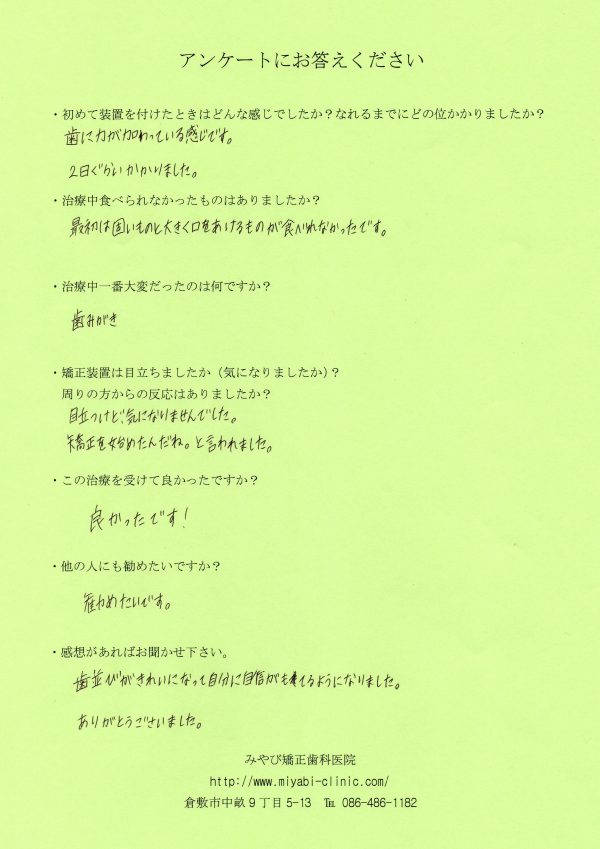 アンケートにお答えください
・初めて装置を付けたときはどんな感じでしたか？なれるまでにどの位かかりましたか？
歯に力が加わっている感じです。
2日ぐらいかかりました。
・治療中食べられなかったものはありましたか？
最初は固いものと大きく口をあけるものが食べれなかったです。
・治療中一番大変だったのは何ですか？
歯みがき
・矯正装置は目立ちましたか（気になりましたか）？
周りの方からの反応はありましたか？
目立つけど、気になりませんでした。
矯正を始めたんだね。と言われました。
・この治療を受けて良かったですか？
良かったです！
・他の人にも勧めたいですか？
勧めたいです。
・感想があればお聞かせ下さい。
歯並びがきれいになって自分に自信がもてるようになりました。
ありがとうございました。
みやび矯正歯科医院
http://www.miyabi-clinic.com/
倉敷市中畝９丁目5-13　℡ 086-486-1182